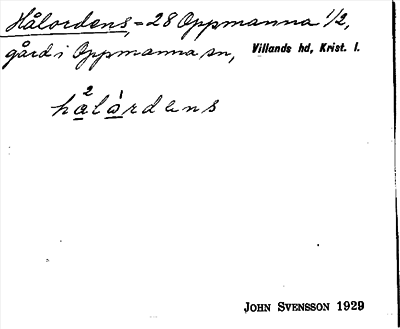 Hålordens, = 28 Oppmanna 1/2,
gård i Oppmanna sn, Villands hd, Krist. l.
2 1
halårdens
JOHN SVENSSON 1929